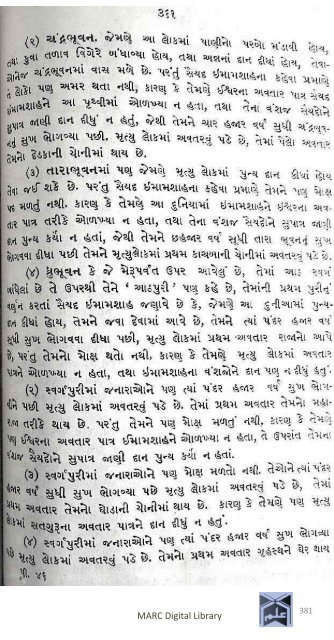 ૩૬૧
(૨) ચંદ્રભૂવન. જેમણે આ લોકમાં પાણીની પરબો મંડાવી હોય,
તથા કુવા તળાવ વિગેરે બંધાવ્યા હોય, તથા અન્નનાં દાન દીધાં હોય, તેવા-
ઓનેજ ચંદ્રભૂવનમાં વાસ મળે છે. પરંતુ સૈયદ ઇમામશાહના કહેવા પ્રમાણે
તે લોકો પણ અમર થતા નથી, કારણ કે તેમણે ઇશ્વરના અવતાર પાત્ર સૈયદ
ઇમામશાહને આ પૃથ્વીમાં ઓળખ્યા ન હતા, તથા તેના વંશજ સૈયદોને
સુપાત્ર જાણી દાન દીધું ન હતું, જેથી તેમને ચાર હજાર વર્ષ સુધી ચંદ્રભૂવ-
નનું સુખ ભોગવ્યા પછી, મૃત્યુ લોકમાં અવતરવું પડે છે, તેમાં પેલા અવતાર
તેમનો દેડકાની યોનીમાં થાય છે.
(૩) તારાભૂવનમાં પણ જેમણે મૃત્યુ લોકમાં પુન્ય દાન કીધાં હોય
તેવા જઈ શકે છે. પરંતુ સૈયદ ઇમામશાહના કહેવા પ્રમાણે તેમને પણ મોક્ષ
પદ મળતું નથી. કારણ કે તેમણે આ દુનિયામાં ઇમામશાહને ઇશ્વરના અવ-
તાર પાત્ર તરીકે ઓળખ્યા ન હતા, તથા તેના વંશજ સૈયદોને સુપાત્ર જાણી
દાન પુન્ય કર્યાં ન હતાં, જેથી તેમને છહજાર વર્ષ સૂધી તારા ભૂવનનું સુખ
ભોગવવા દીધા પછી તેમને મૃત્યુલોકમાં પ્રથમ કાચબાની યોનીમાં અવતરવું પડે છે.
(૪) ધ્રુભૂવન કે જે મેરૂપર્વત ઉપર આવેલું છે, તેમાં આઠ સ્વર્ગ
બાંધેલાં છે તે ઉપરથી તેને ' આઠપુરી ' પણ કહે છે, તેમાંની પ્રથમ પુરીનું
વર્ણન કરતાં સૈયદ ઇમામશાહ જણાવે છે કે, જેમણે આ દુનીઆમાં પુન્ય-
દાન કીધાં હોય, તેમને જવા દેવામાં આવે છે, તેમને ત્યાં પંદર હજાર વર્ષ
સુધી સુખ ભોગવવા દીધા પછી, મૃત્યુ લોકમાં પ્રથમ અવતાર રાજાનો આપે
છે, પરંતુ તેમનો મોક્ષ થતો નથી, કારણ કે તેમણે મૃત્યુ લોકમાં અવતાર
પાત્રને ઓળખ્યા ન હતા, તથા ઇમામશાહના વંશજોને દાન પણ ન દીધું હતું.
(૨) સ્વર્ગપુરીમાં જનારાઓને પણ ત્યાં પંદર હજાર વર્ષ સુખ ભોગ-
વીને પછી મૃત્યુ લોકમાં અવતરવું પડે છે. તેમાં પ્રથમ અવતાર તેમનો મહા-
રાજા તરીકે થાય છે. પરંતુ તેમને પણ મોક્ષ મળતું નથી, કારણ કે તેમણે
પણ ઇશ્વરના અવતાર પાત્ર ઇમામશાહને ઓળખ્યા ન હતા, તે ઉપરાંત તેમના
વંશજ સૈયદોને સુપાત્ર જાણી દાન પુન્ય કર્યાં ન હતાં.
(૩) સ્વર્ગપુરીમાં જનારાઓને પણ મોક્ષ મળતો નથી. તેઓને ત્યાં પંદર
હજાર વર્ષ સુધી સુખ ભોગવ્યા પછે મૃત્યુ લોકમાં અવતરવું પડે છે, તેમાં
પ્રથમ અવતાર તેમનો ઘોડાની યોનીમાં થાય છે. કારણ કે તેમણે પણ મૃત્યુ
લોકમાં સતગુરૂના અવતાર પાત્રને દાન દીધું ન હતું.
(૪) સ્વર્ગપુરીમાં જનારાઓને પણ ત્યાં પંદર હજાર વર્ષ સુખ ભોગવ્યા
પછે મૃત્યુ લોકમાં અવતરવું પડે છે. તેમનો પ્રથમ અવતાર ગૃહસ્થને ઘેર થાય
પી. ૪૬
MARC Digital Library
381